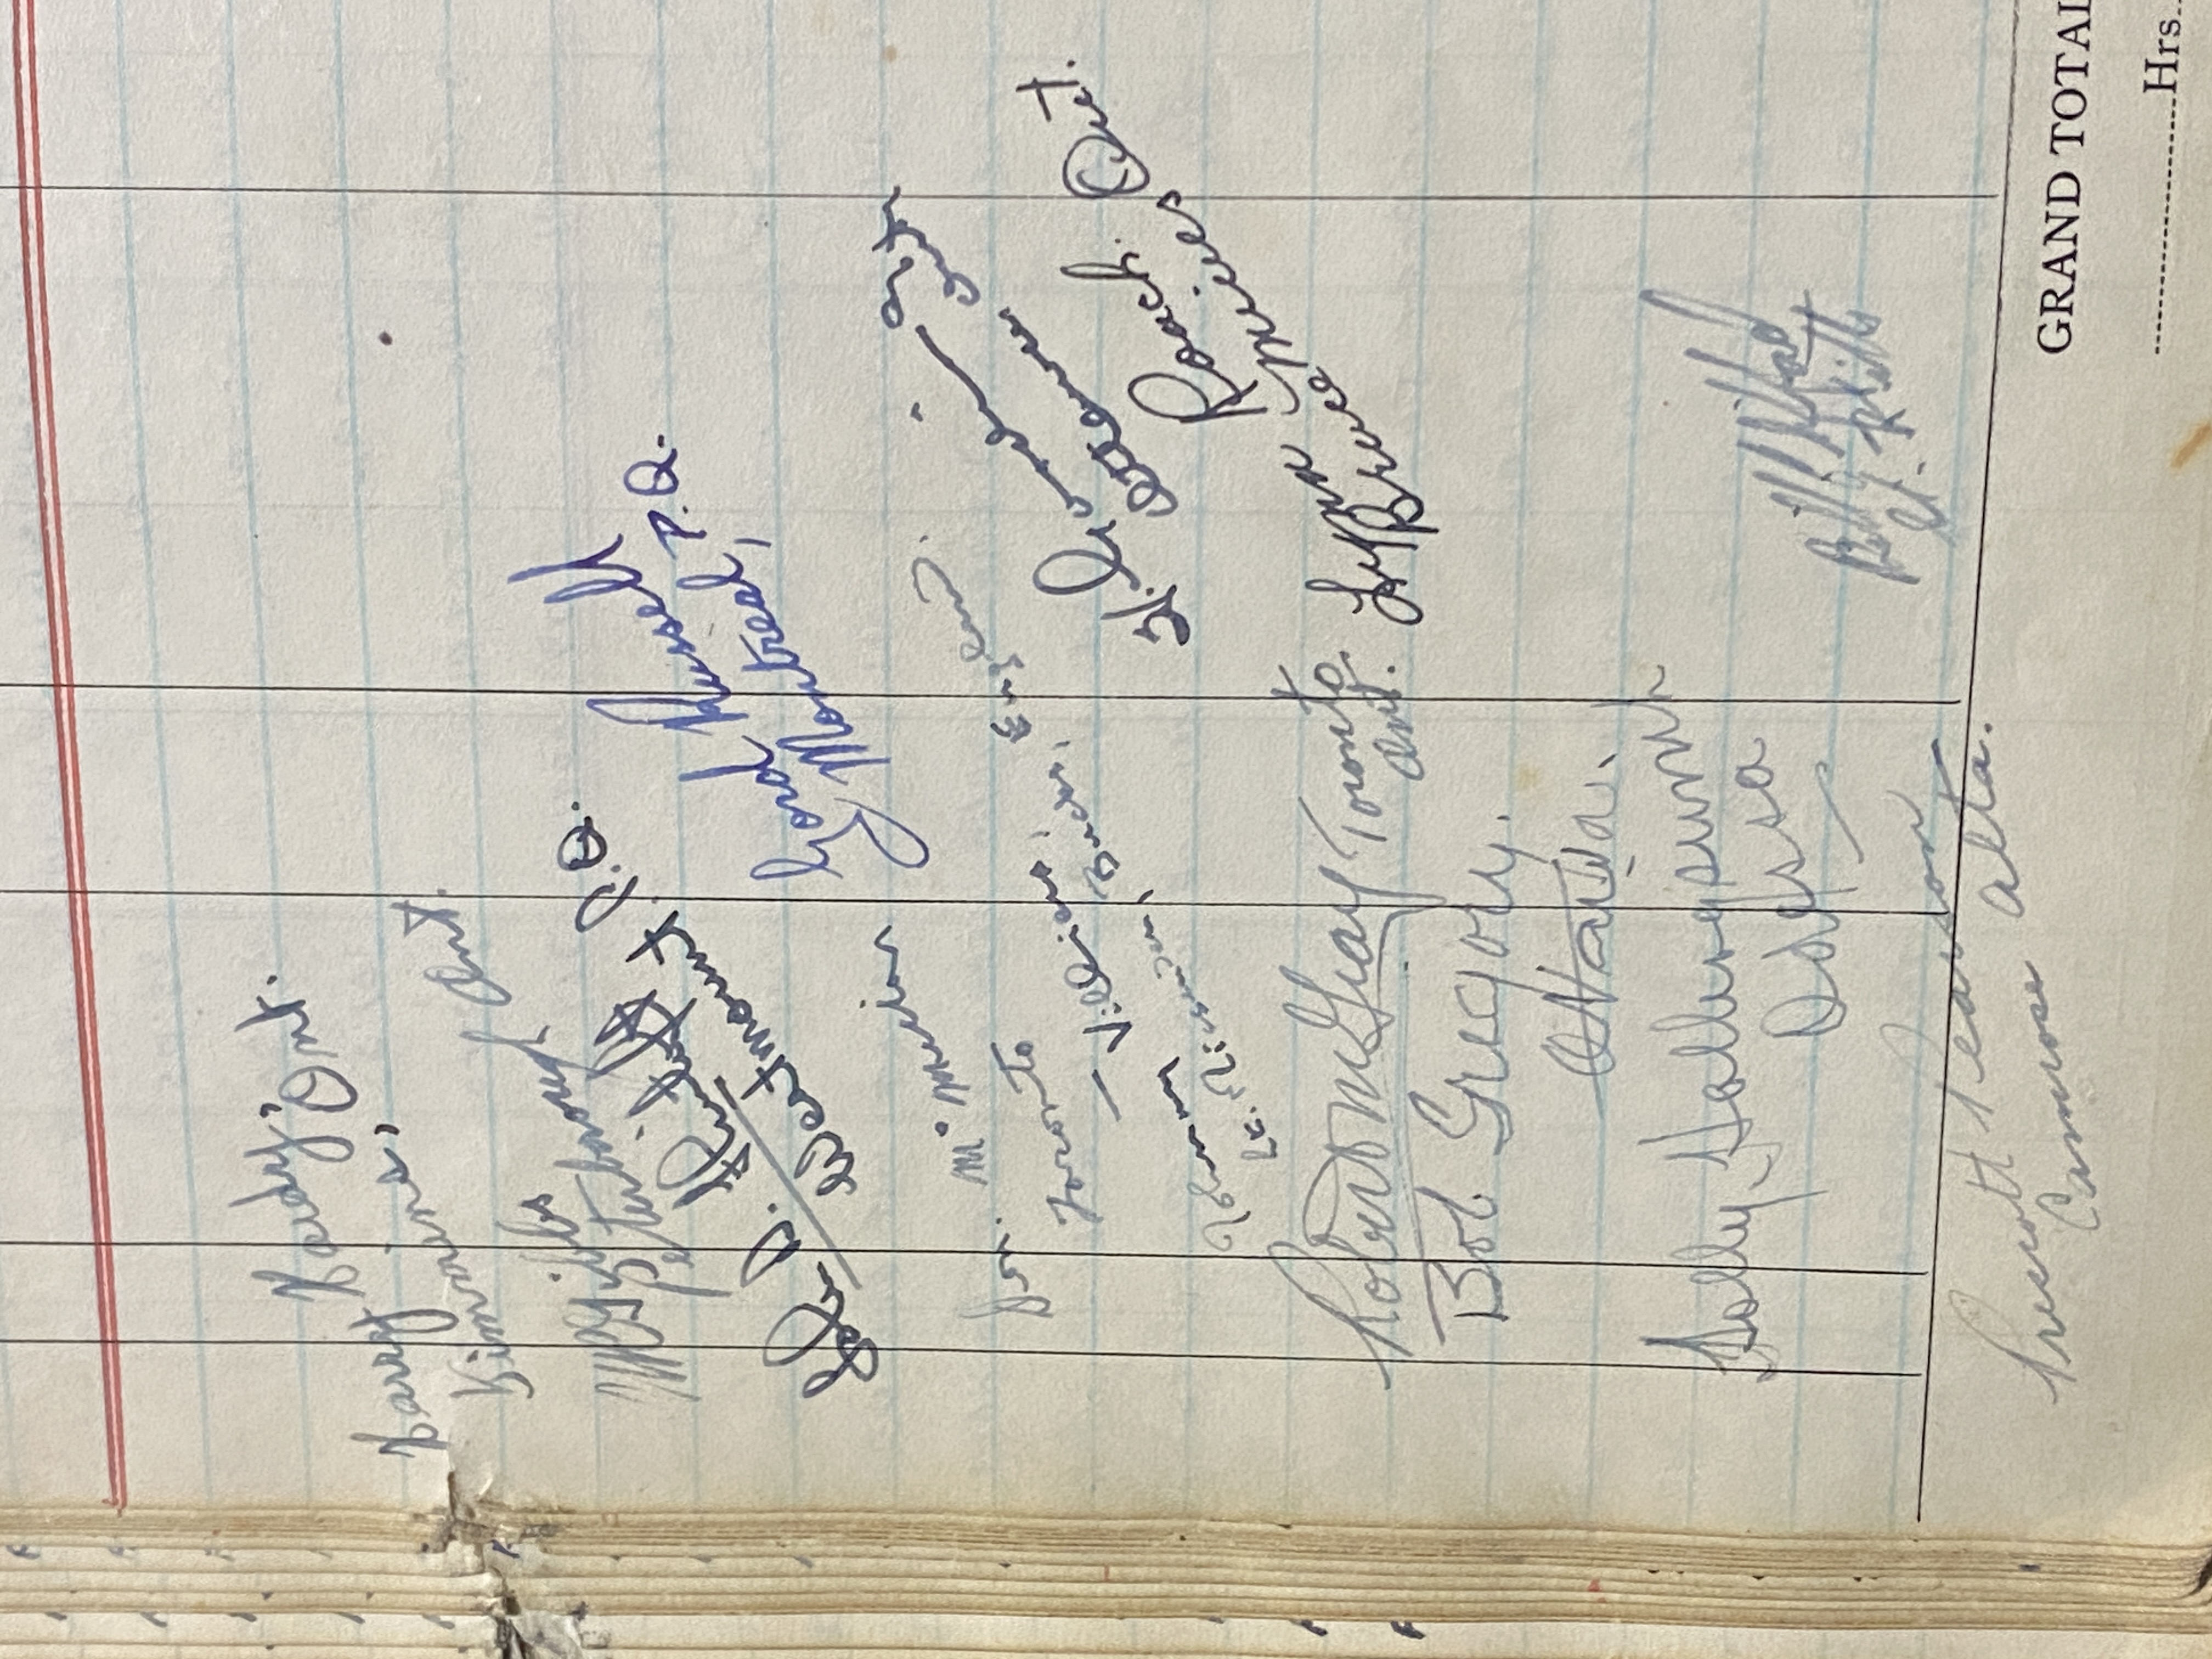 Harry Hardy,
Timmins, Ont.
McGibbs
Peterborough Ont.
John D.
Westmount. P.Q.
Gord Russell
Montreal, P.Q.
Don. McMillan
Toronto
Johnny Villiers,
Bucks, England.
H.
Ottawa Ont
Lynn Roach.
Bruce Mines Ont.
Robert McGray Toronto
Ont.
Bob Gregory.
Ottawa.
Holly Hollingsworth
Odessa
Bill
St. Kitts
Prescott Pearson
Camrose Alta.
GRAND TOTAL
Hrs